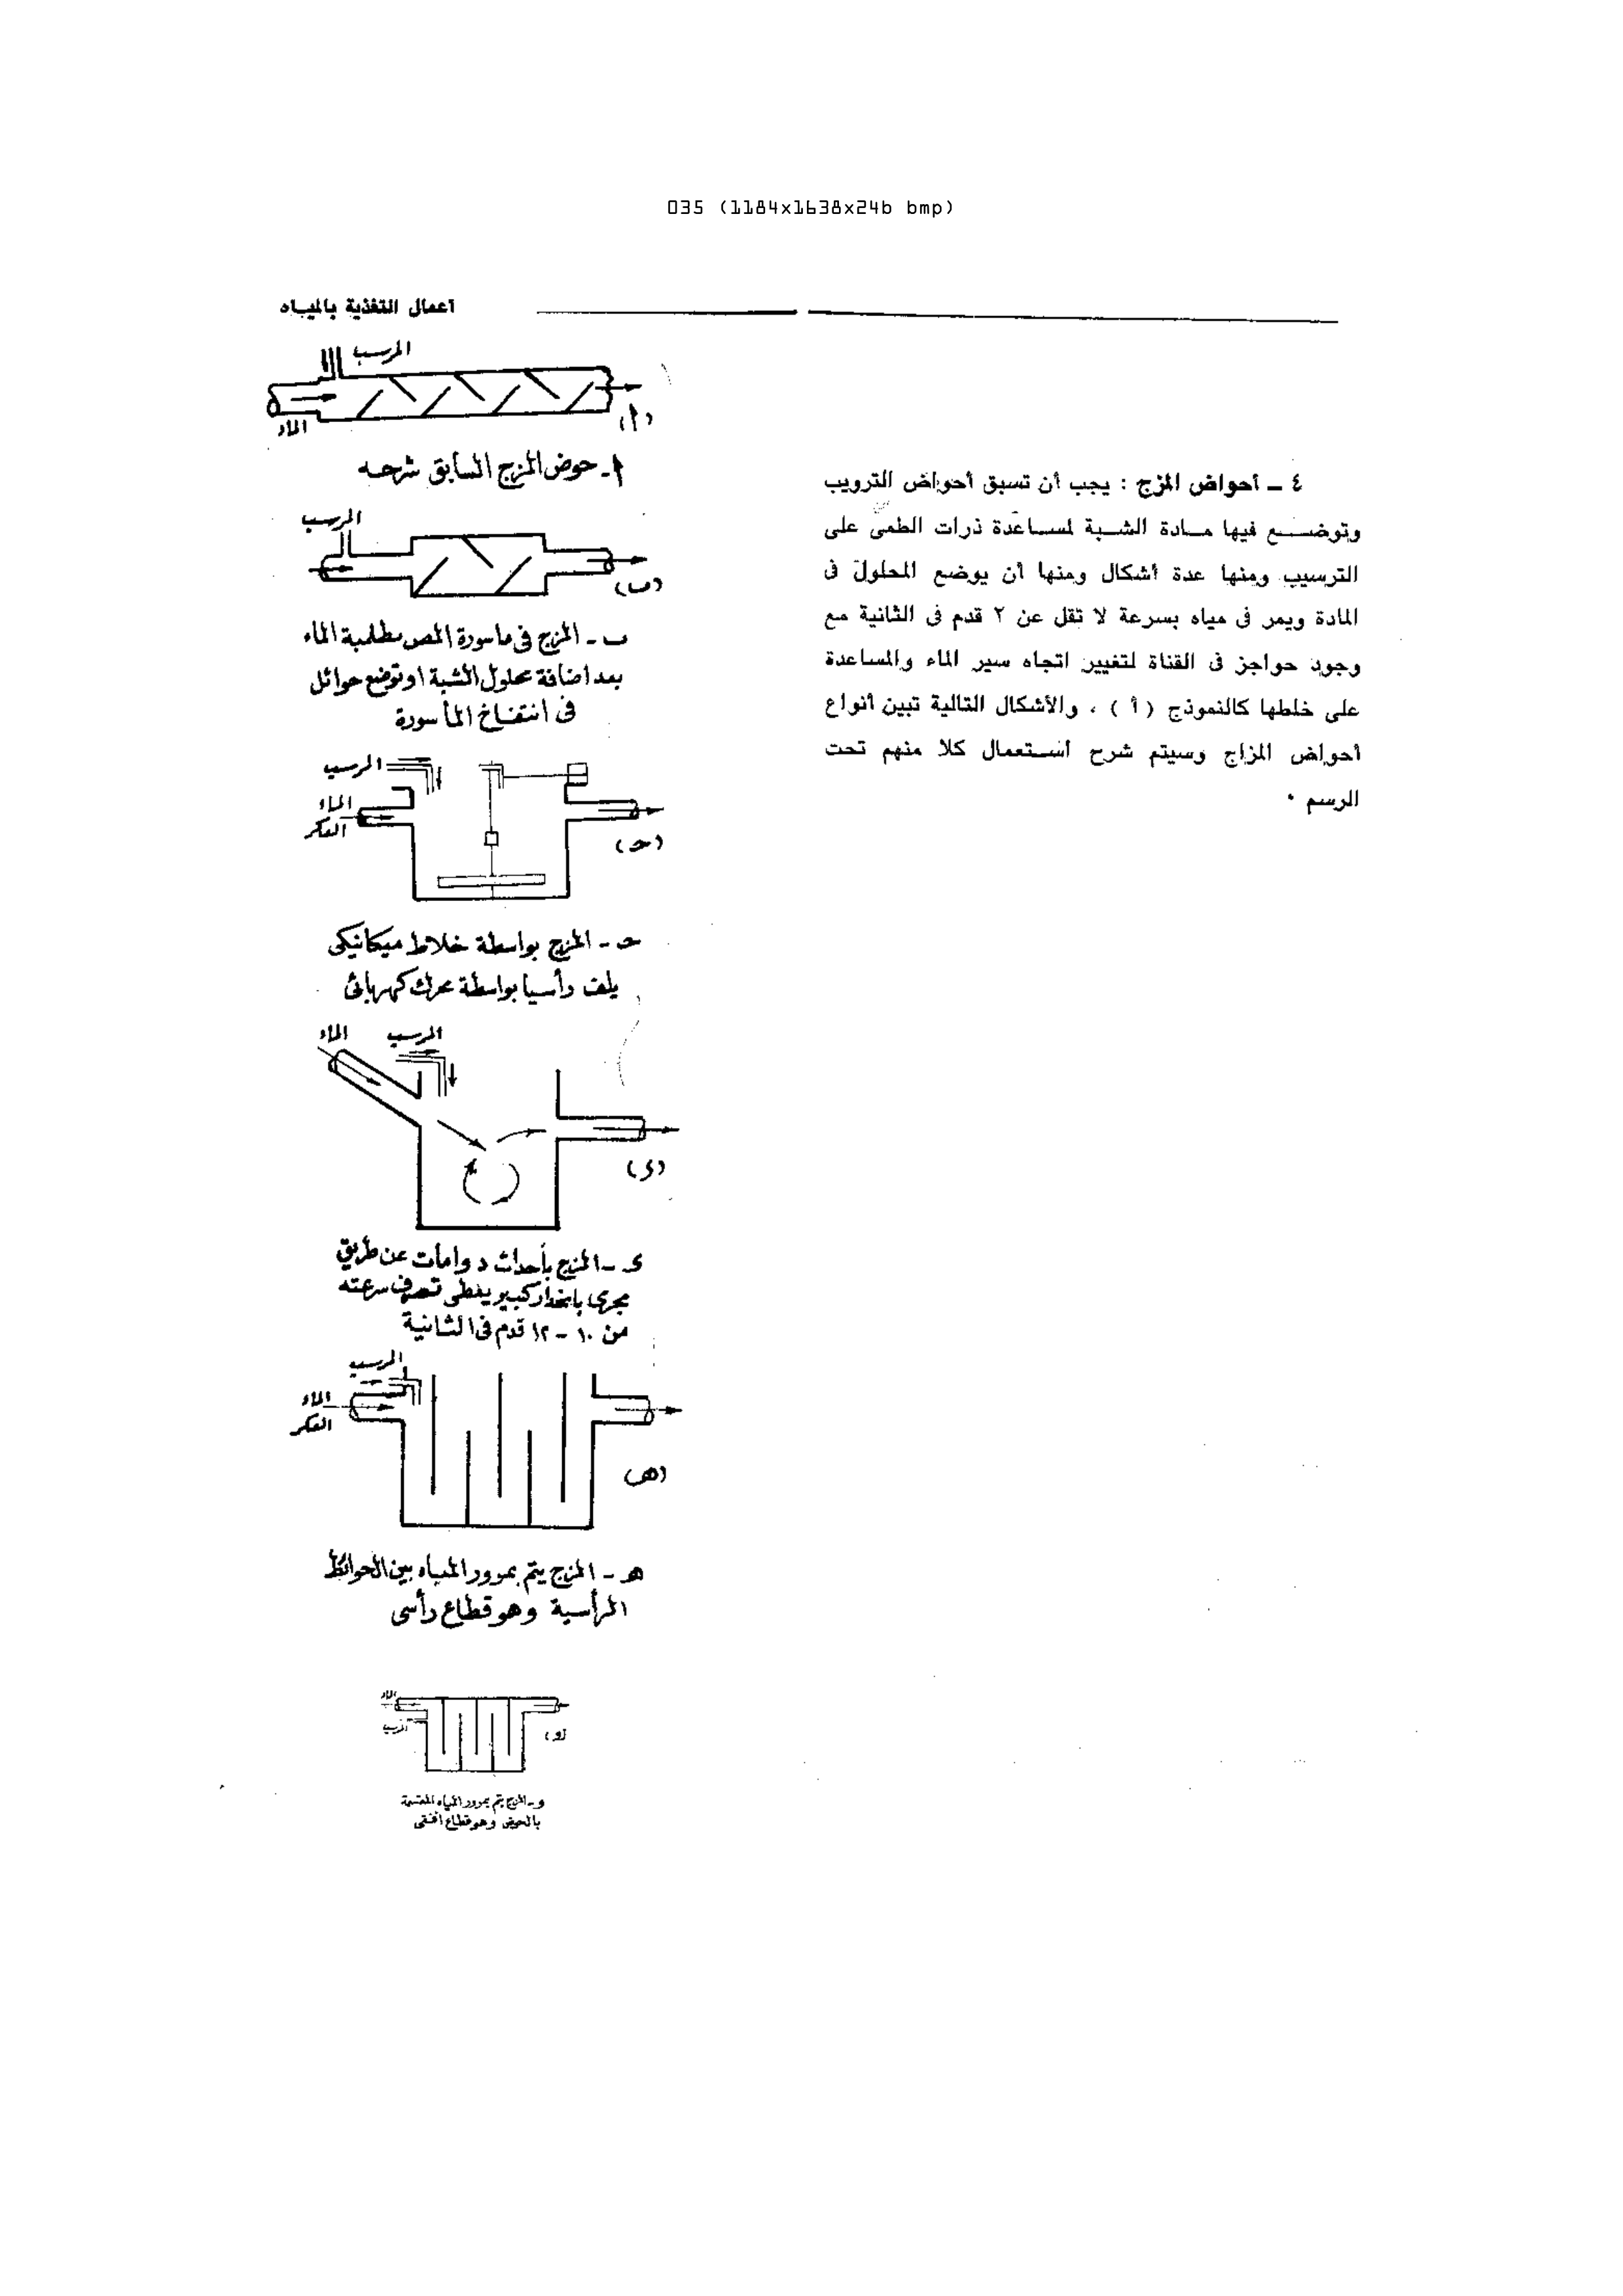 035 (1184x1638x24b bmp)
أعمال التغذية بالمياه
٤ – أحواض المزج : يجب أن تسبق أحواض الترويب
وتوضع فيها مادة الشبة لمساعدة ذرات الطمى على
الترسيب ومنها عدة أشكال ومنها أن يوضع المحلول فى
المادة ويمر فى مياه بسرعة لا تقل عن ٢ قدم فى الثانية مع
وجود حواجز فى القناة لتغيير اتجاه سير الماء والمساعدة
على خلطها كالنموذج ( أ ) ، والأشكال التالية تبين أنواع
أحواض المزاج وسيتم شرح استعمال كلا منهم تحت
الرسم .
المرسب
الماء
(أ)
أ - حوض المزج السابق شرحه
المرسب
(ب)
ب - المزج فى ماسورة المص بطلمبة الماء
بعد اضافة محلول الشبة او توضع حوائل
فى انتفاخ المأسورة
المرسب
الماء
العكر
(حـ)
حـ - المزج بواسطة خلاط ميكانيكى
يلف رأسيا بواسطة محرك كهربائى
الماء
المرسب
(ى)
ى - المزج بأحداث دوامات عن طريق
مجرى بانحدار كبير يغطى تصرف سرعته
من ١٠ - ١٢ قدم فى الثانية
المرسب
الماء
العكر
(هـ)
هـ - المزج يتم بمرور المياه بين الحوائط
الرأسية وهو قطاع رأسى
الماء
المرسب
(و)
و - المزج يتم بمرور المياه المقسمة
بالحوض وهو قطاع افقى